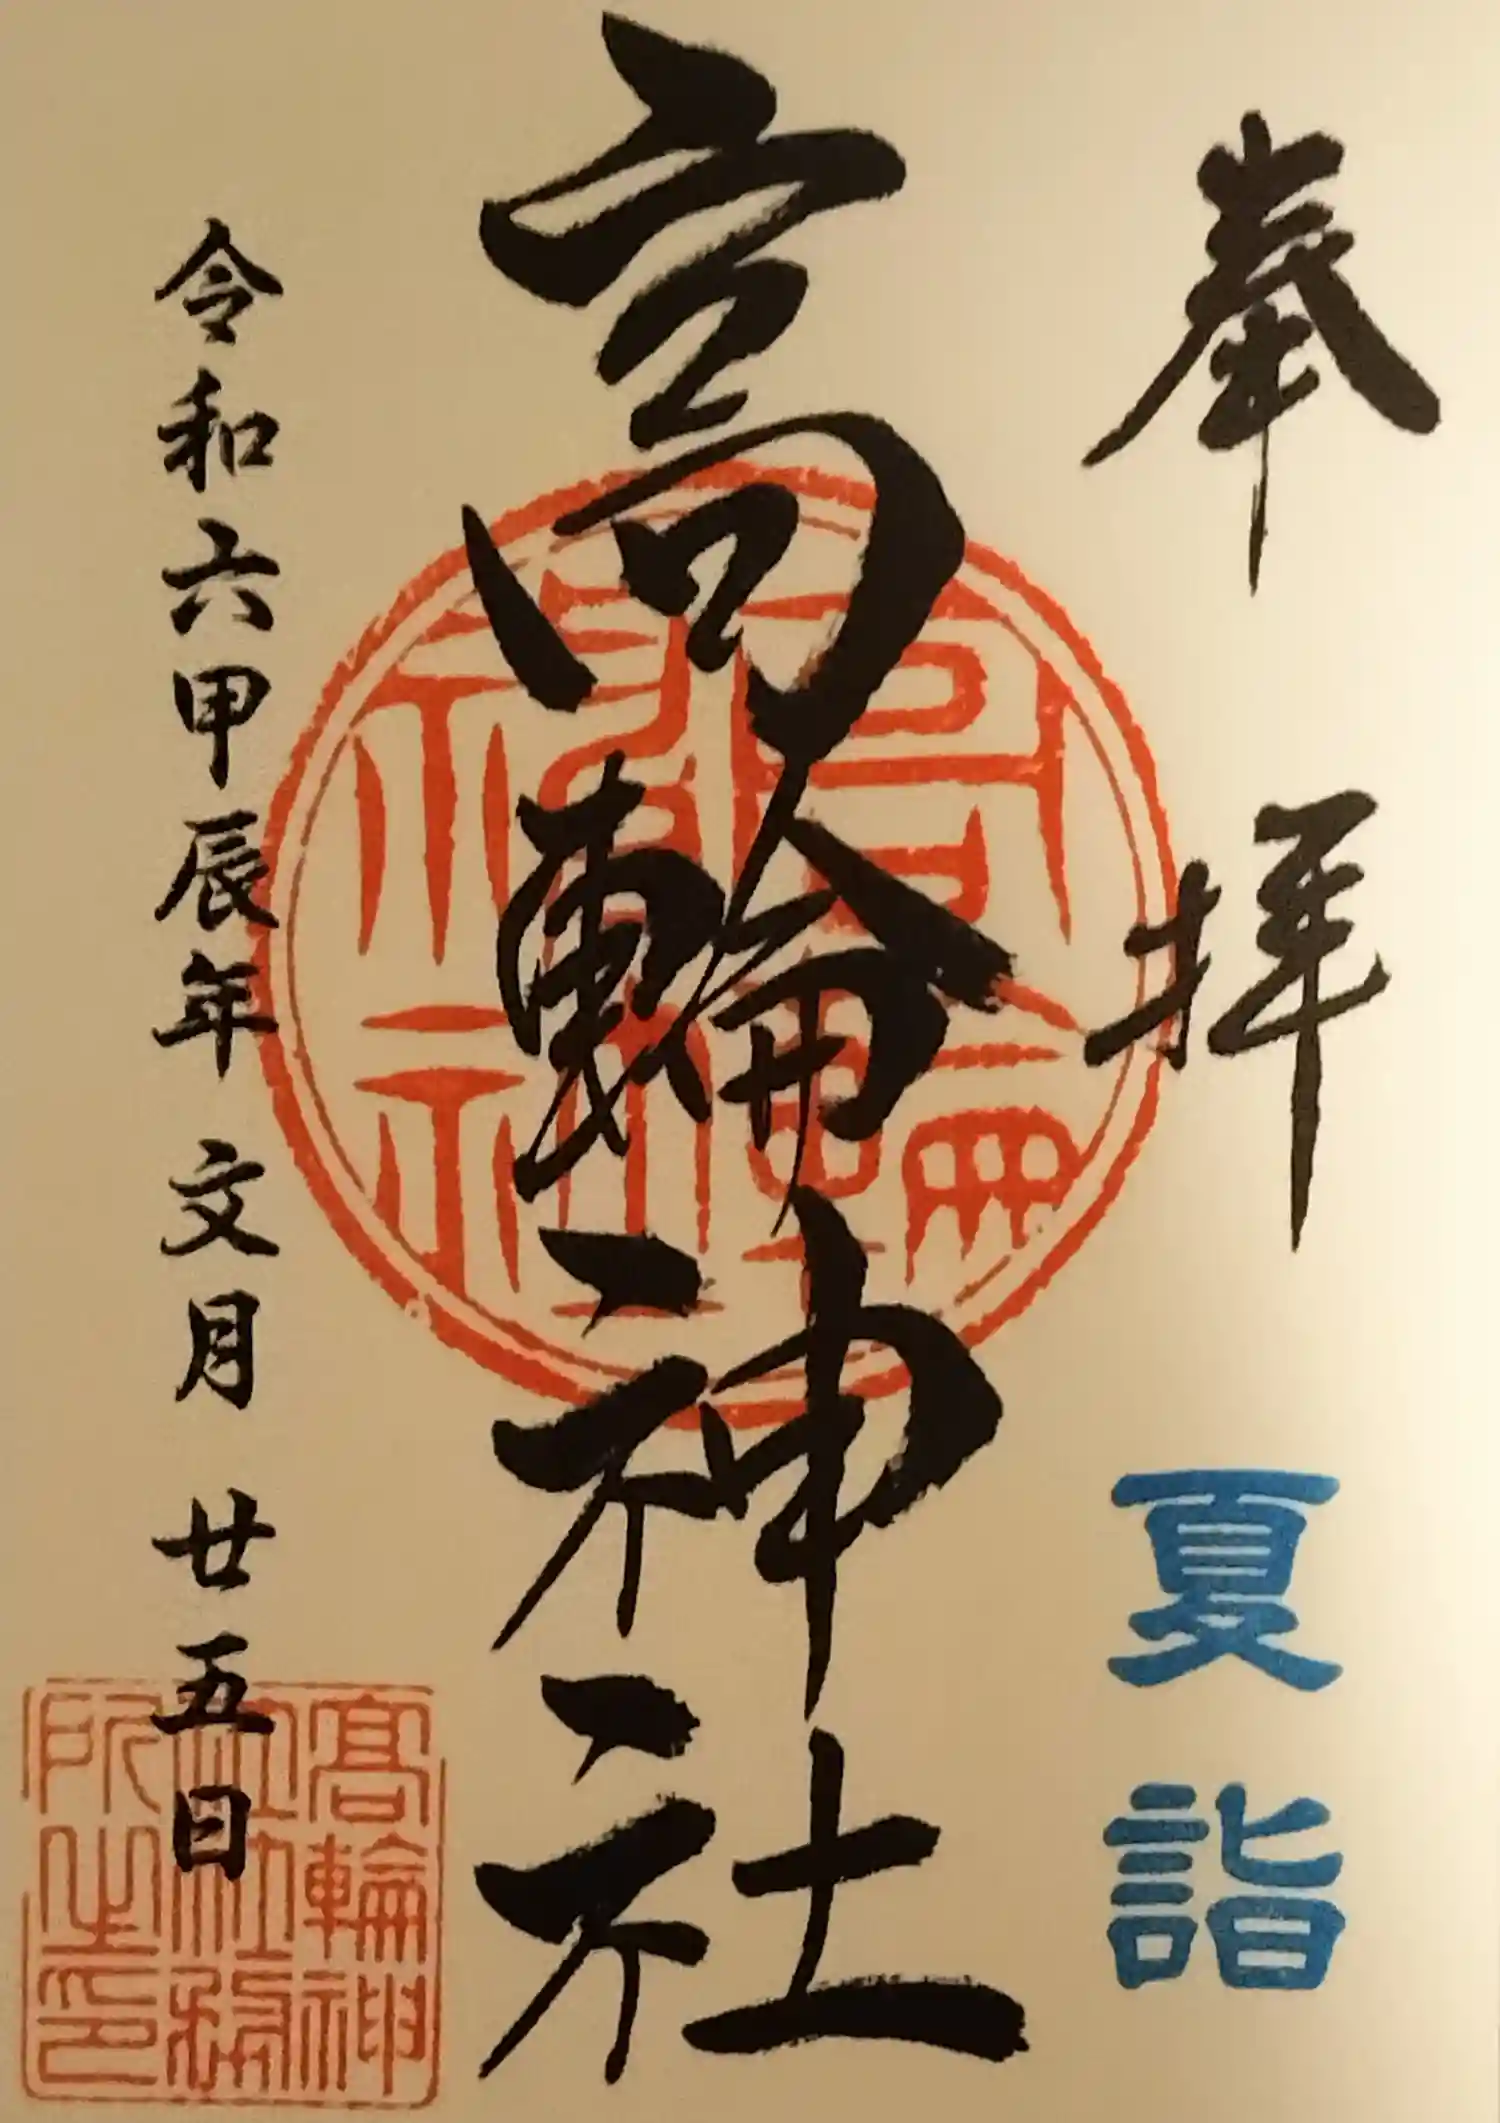 奉拝
夏詣
高輪神社
令和六甲辰年 文月 廿五日
高輪神社
高輪神
社社務
所之印